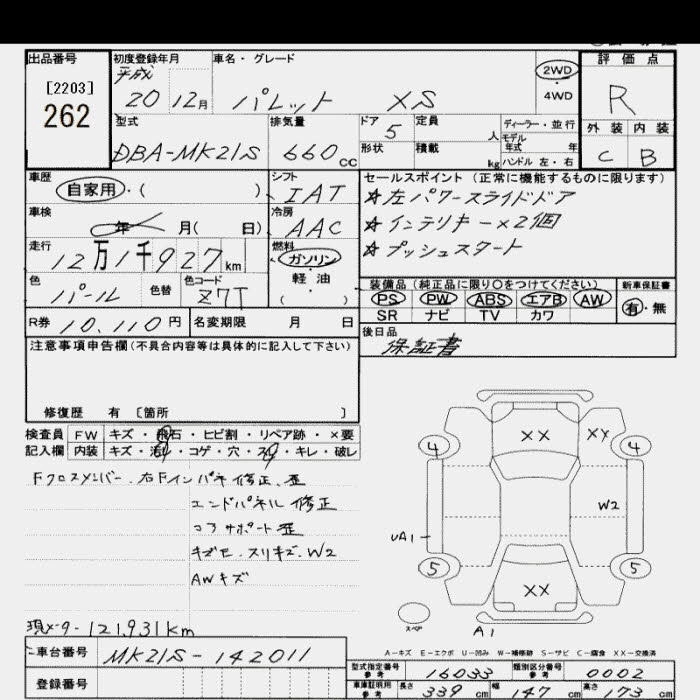 出品番号 初度登録年月 車名・グレード 評価点
[2203] 平成 2WD
262 20 12月 パレット XS 4WD R
型式 排気量 ドア 定員 ディーラー・並行 外装 内装
5 人 モデル年式 年
DBA-MK21S 660cc 形状 積載 kg ハンドル 左・右 C B
車歴 シフト セールスポイント(正常に機能するものに限ります)
自家用・( ) IAT ☆左パワースライドドア
車検 冷房 ☆インテリキー×2個
年 月( 日) AAC ☆プッシュスタート
走行 燃料
12万1千927km ガソリン・
色 色替 色コード 軽油 装備品(純正品に限り○をつけてください) 新車保証書
パール Z7T ・( ) PS PW ABS エアB AW 有・無
SR ナビ TV カワ
R券 10,110円 名変期限 月 日 後日品
注意事項申告欄(不具合内容等は具体的に記入して下さい) 保証書
修復歴 有 〔箇所 〕
検査員 FW キズ・飛石・ヒビ割・リペア跡・×要
記入欄 内装 キズ・汚れ・コゲ・穴・スレ・キレ・破レ
Fクロスメンバー、右Fインパネ修正、歪
エンドパネル修正
コアサポート歪
キズセ、スリキズ、W2
AWキズ
4 XX XY 4
W2
UA1
5 XX 5
スペア A1
現メーター 121,931km
A-キズ E-エクボ U-凹み W-補修跡 S-サビ C-腐食 XX-交換済
車台番号 MK21S-142011
型式指定番号 参考 16033 類別区分番号 参考 0002
登録番号 車庫証明用 参考 長さ 339cm 幅 147cm 高さ 173cm